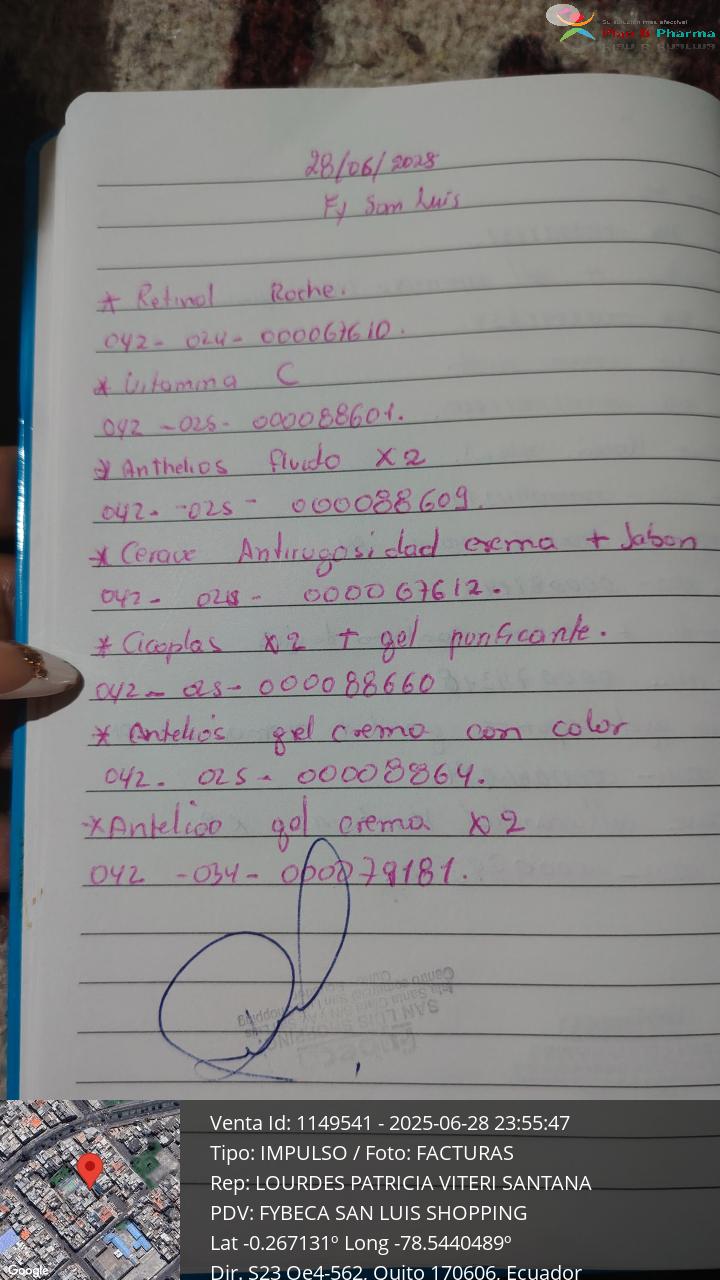 Su solución más efectiva!
Plan B Pharma
28/06/2025
Fy San Luis
* Retinol Roche.
042- 024- 000067610.
* Vitamina C
042 -025- 000088601.
* Anthelios fluido X2
042- -025- 000088609.
* Cerave Antirugosidad crema + Jabon
042- 024- 000067612.
* Cicaplas x2 + gel purificante.
042- 025- 000088660
* Antelios gel crema con color
042- 025- 00008864.
* Antelios gel crema x2
042 -034- 000079181.
SAN LUIS SHOPPING
Venta Id: 1149541 - 2025-06-28 23:55:47
Tipo: IMPULSO / Foto: FACTURAS
Rep: LOURDES PATRICIA VITERI SANTANA
PDV: FYBECA SAN LUIS SHOPPING
Lat -0.267131º Long -78.5440489º
Dir. S23 Oe4-562, Quito 170606, Ecuador
Google